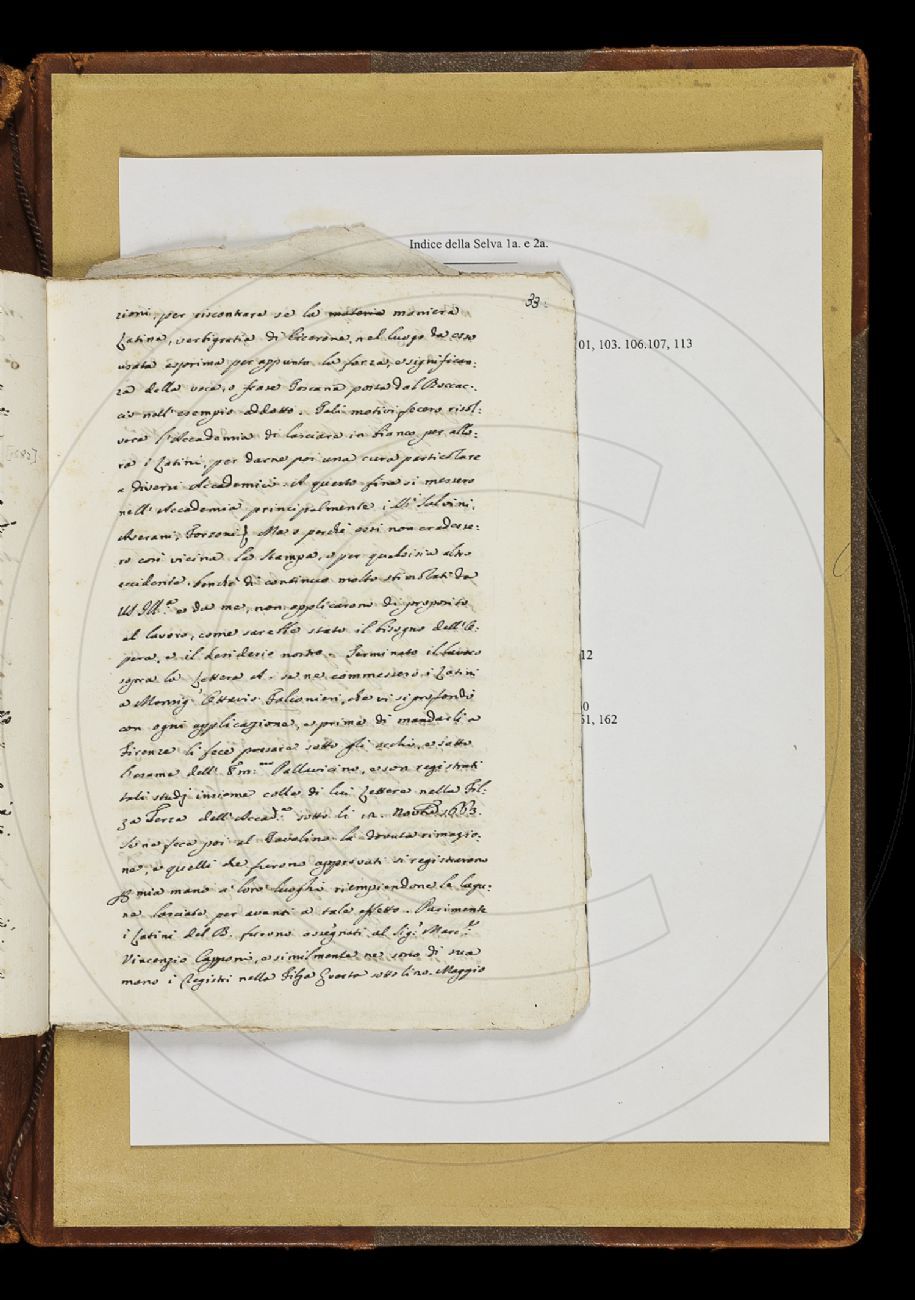 Indice della Selva 1a. e 2a.
01, 103. 106.107, 113
12
0
51, 162
33.
zioni, per riscontrare se la materia maniera
Latina, verbigratia di Cicerone, nel luogo da esso
usata esprima per appunto la forza, e significan:
za della voce, o frase Toscana posta dal Boccac:
cio nell'esempio addotto. Tali motivi fecero risol:
vere l'Accademia di lasciare in bianco per allo:
ra i Latini, per darne poi una cura particolare
a diversi Accademici. A questo fine si messero
nell'Accademia principalmente i SS.i Salvini,
Averani, Forzoni Ma o perché essi non credesse:
ro così vicina la stampa, o per qualsisia altro
accidente, benché di continuo molto stimolati da
VS Ill.a e da me, non applicarono di proposito
al lavoro, come sarebbe stato il bisogno dell'O:
pera, e il desiderio nostro. Terminato il lavoro
sopra la Lettera A. se ne commessero i Latini
a Monsig.r Ottavio Falconieri, che vi si profondò
con ogni applicazione, e prima di mandarli a
Firenze li fece passare sotto gli occhi, e sotto
l'esame dell'Em.mo Pallavicino, e son registrati
tali studj insieme colle di lui Lettere nella Fil:
za Terza dell'Accad.a sotto li 12. Novbre 1663.
Se ne fece poi al Tavolino la dovuta rimazio:
ne, e quelli che furono approvati si registrarono
per mia mano a' loro luoghi riempiendone le lagu:
ne lasciate per avanti a tale effetto. Parimente
i Latini del B. furono assegnati al Sig.r Marc.e
Vincenzio Capponi, e similmente ne sono di sua
mano i Registri nella Filza Quarta sotto li no. Maggio